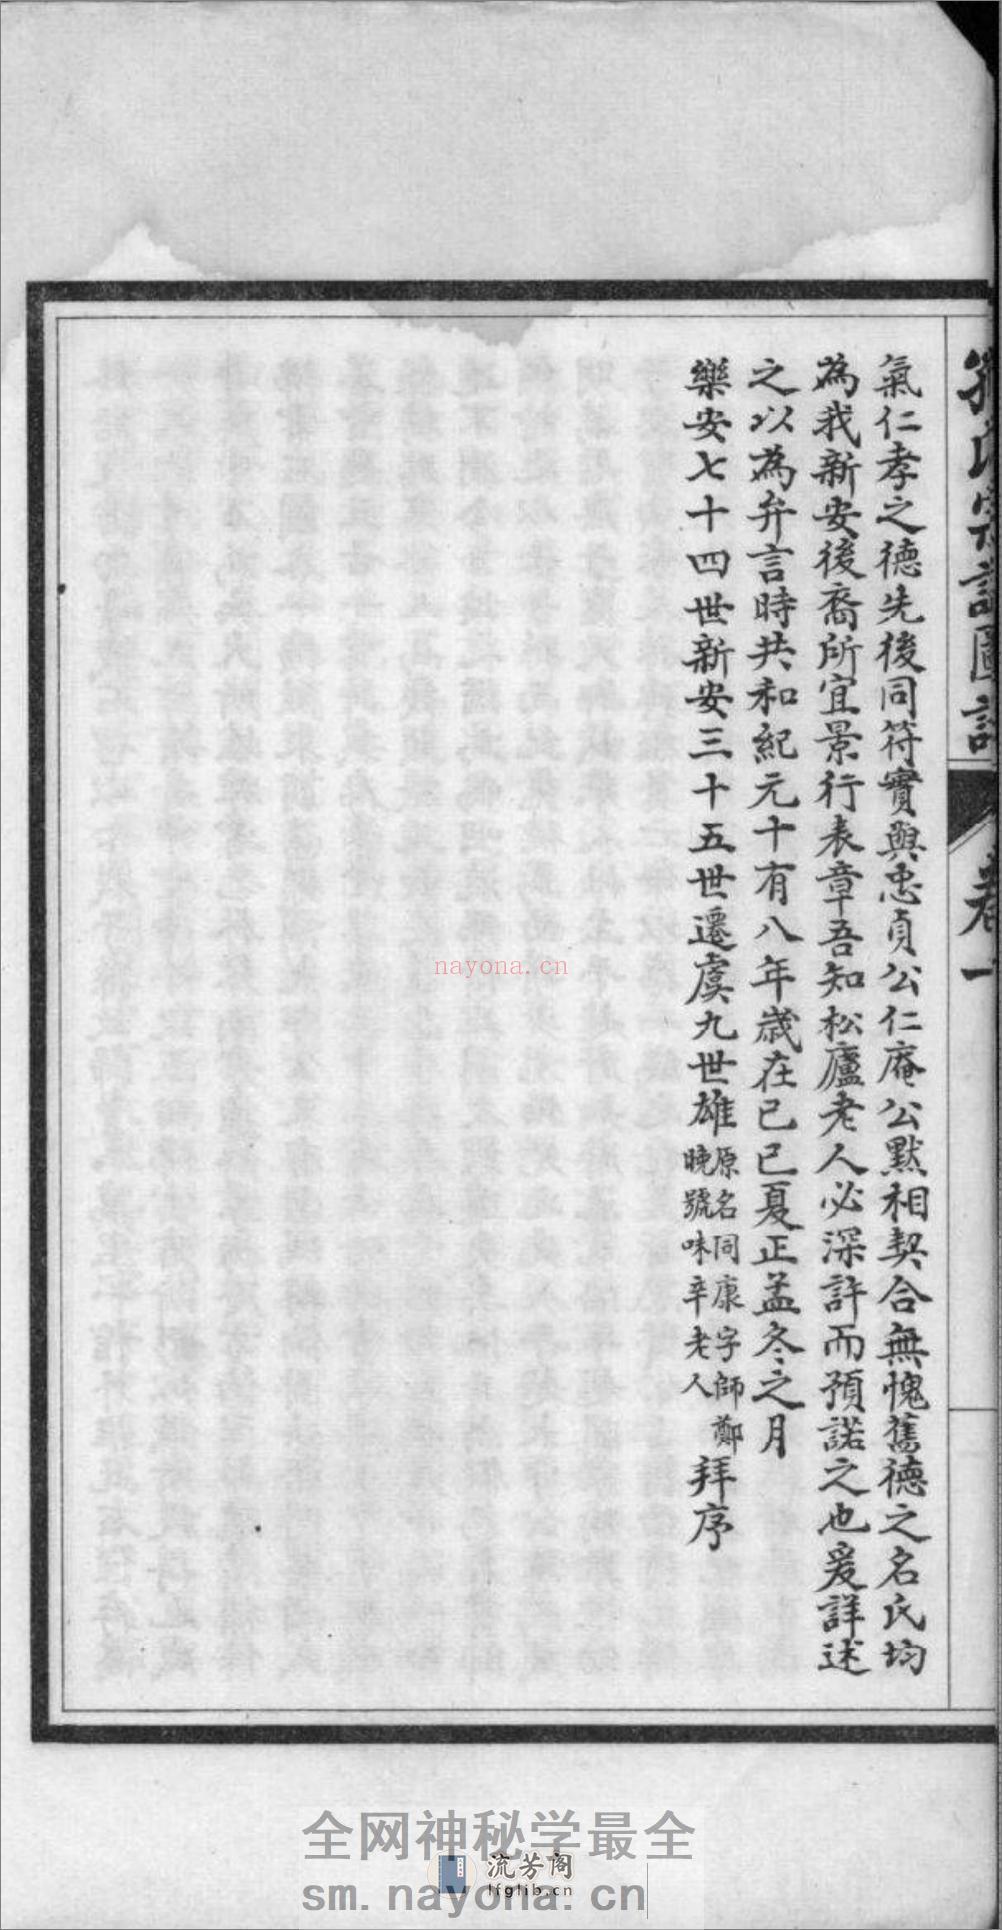 氣仁孝之德先後同符實與忠貞公仁庵公默相契合無愧舊德之名氏均
為我新安後裔所宜景行表章吾知松廬老人必深許而預諾之也爰詳述
之以為弁言時共和紀元十有八年歲在己巳夏正孟冬之月
樂安七十四世新安三十五世遷虞九世雄原名同康字師鄭晚號味辛老人拜序
卷一
nayona.cn
全网神秘学最全
流芳阁
lfglib.cn
sm.nayona.cn